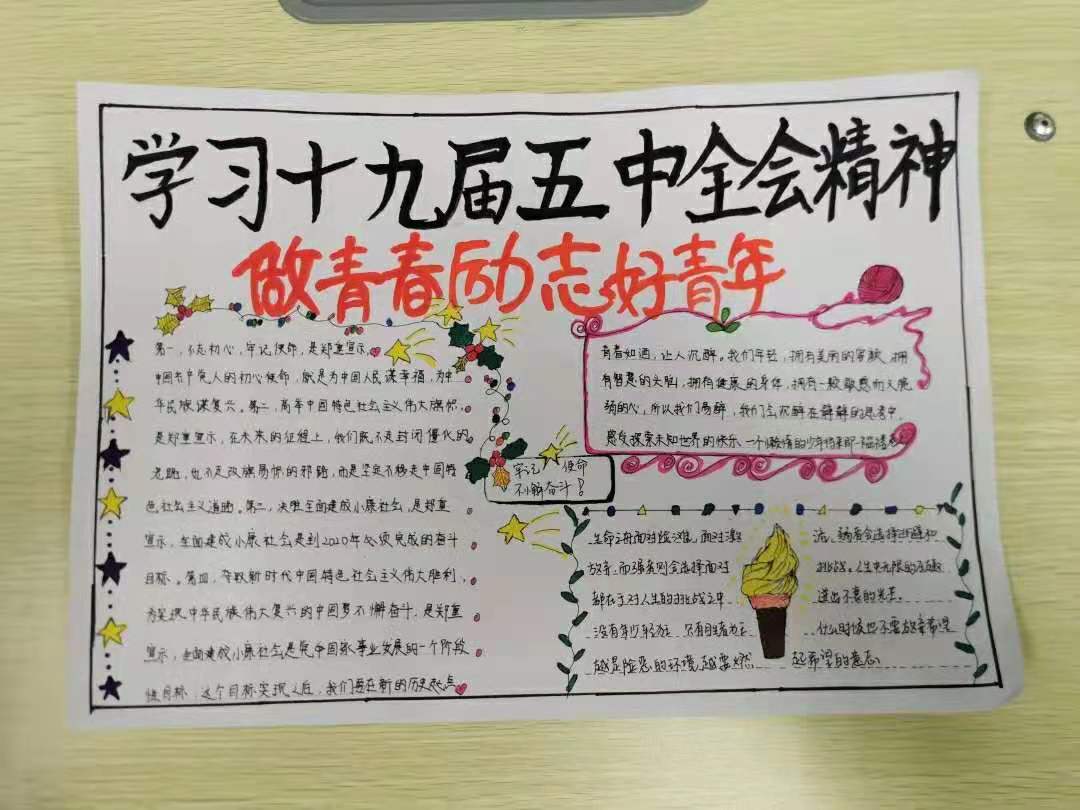 学习十九届五中全会精神
做青春励志好青年
第一,不忘初心,牢记使命,是郑重宣示,
中国共产党人的初心使命,就是为中国人民谋幸福,为中
华民族谋复兴。第二,高举中国特色社会主义伟大旗帜,
是郑重宣示,在未来的征程上,我们既不走封闭僵化的
老路,也不走改旗易帜的邪路,而是坚定不移走中国特
色社会主义道路。第三,决胜全面建成小康社会,是郑重
宣示,全面建成小康社会是到2020年必须完成的奋斗
目标。第四,夺取新时代中国特色社会主义伟大胜利,
为实现中华民族伟大复兴的中国梦不懈奋斗,是郑重
宣示,全面建成小康社会是党中国家事业发展的一个阶段
性目标,这个目标实现之后,我们要在新的历史起点
牢记 使命
不懈奋斗!
青春如酒,让人沉醉。我们年轻,拥有美丽的容颜,拥
有智慧的头脑,拥有健康的身体,拥有一颗敏感而又脆
弱的心,所以我们易醉,我们会沉醉在静静的思考中,
感受探索未知世界的快乐,一个懒惰的少年将来即
生命之舟面对险滩,面对激 流,弱者会选择逃避和
放弃,而强者则会选择面对 挑战。人生无限的
都在于对人生的挑战之中 迸出不衰的光芒。
没有年少轻狂,只有 什么时候也不要放弃希望
越是险恶的环境越要燃 起希望的意志